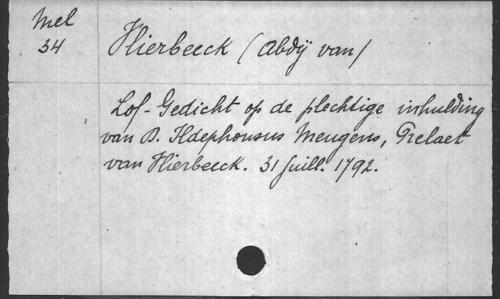 Mel
34
Hierbeeck (Abdij van)
Lof-Gedicht op de plechtige inhulding
van D. Ildephonsus Mengens, Prelaet
van Hierbeeck. 31 Juill. 1792.